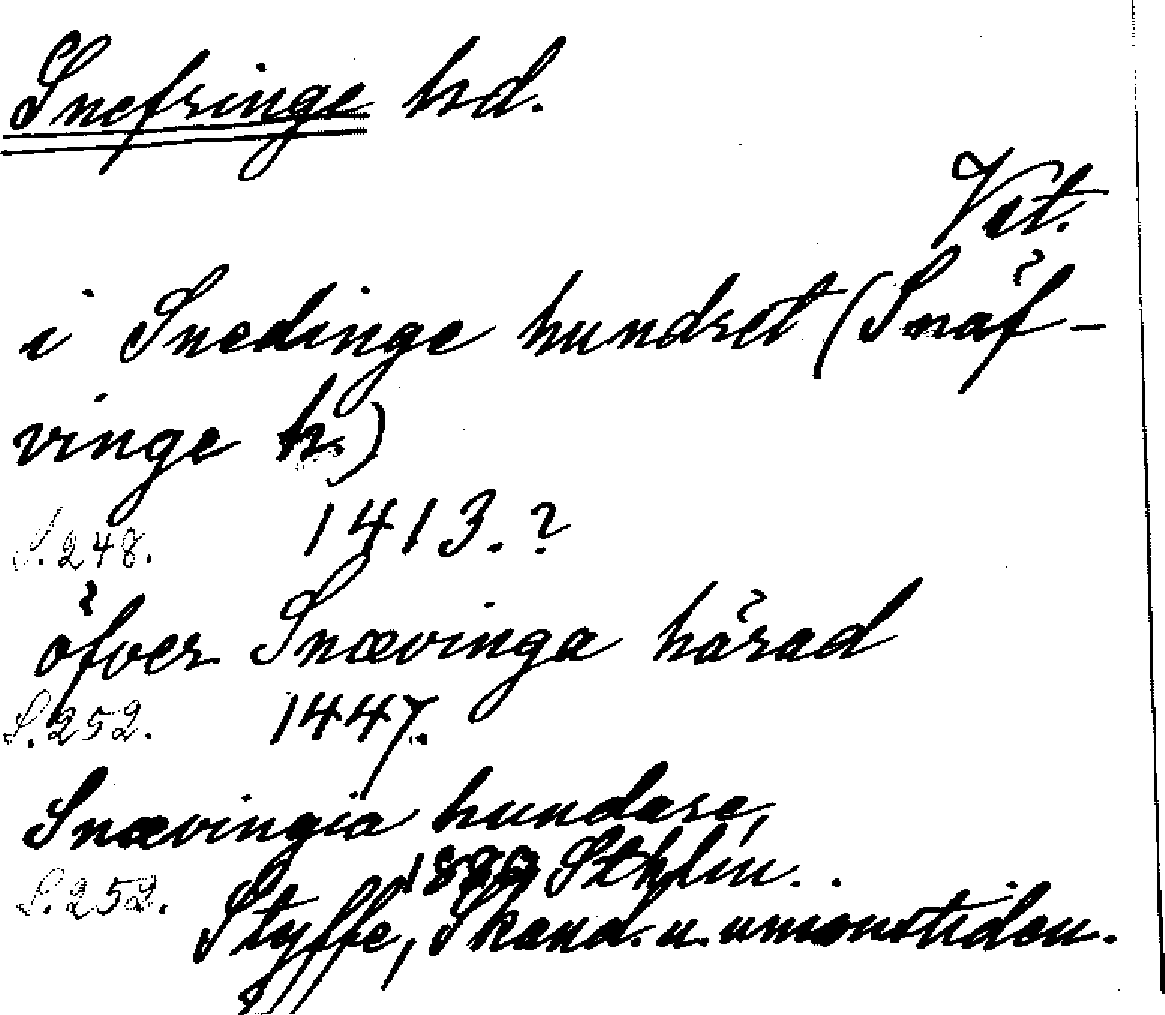 Snefringe hd.
Vst.
i Snedinge hundret (Snäf-
vinge h.)
S. 248. 1413. ?
öfver Snævinga härad
S. 252. 1447.
Snævingia hundare,
1880 Sthlm.
S. 252. Styffe, Skand. u. unionstiden.